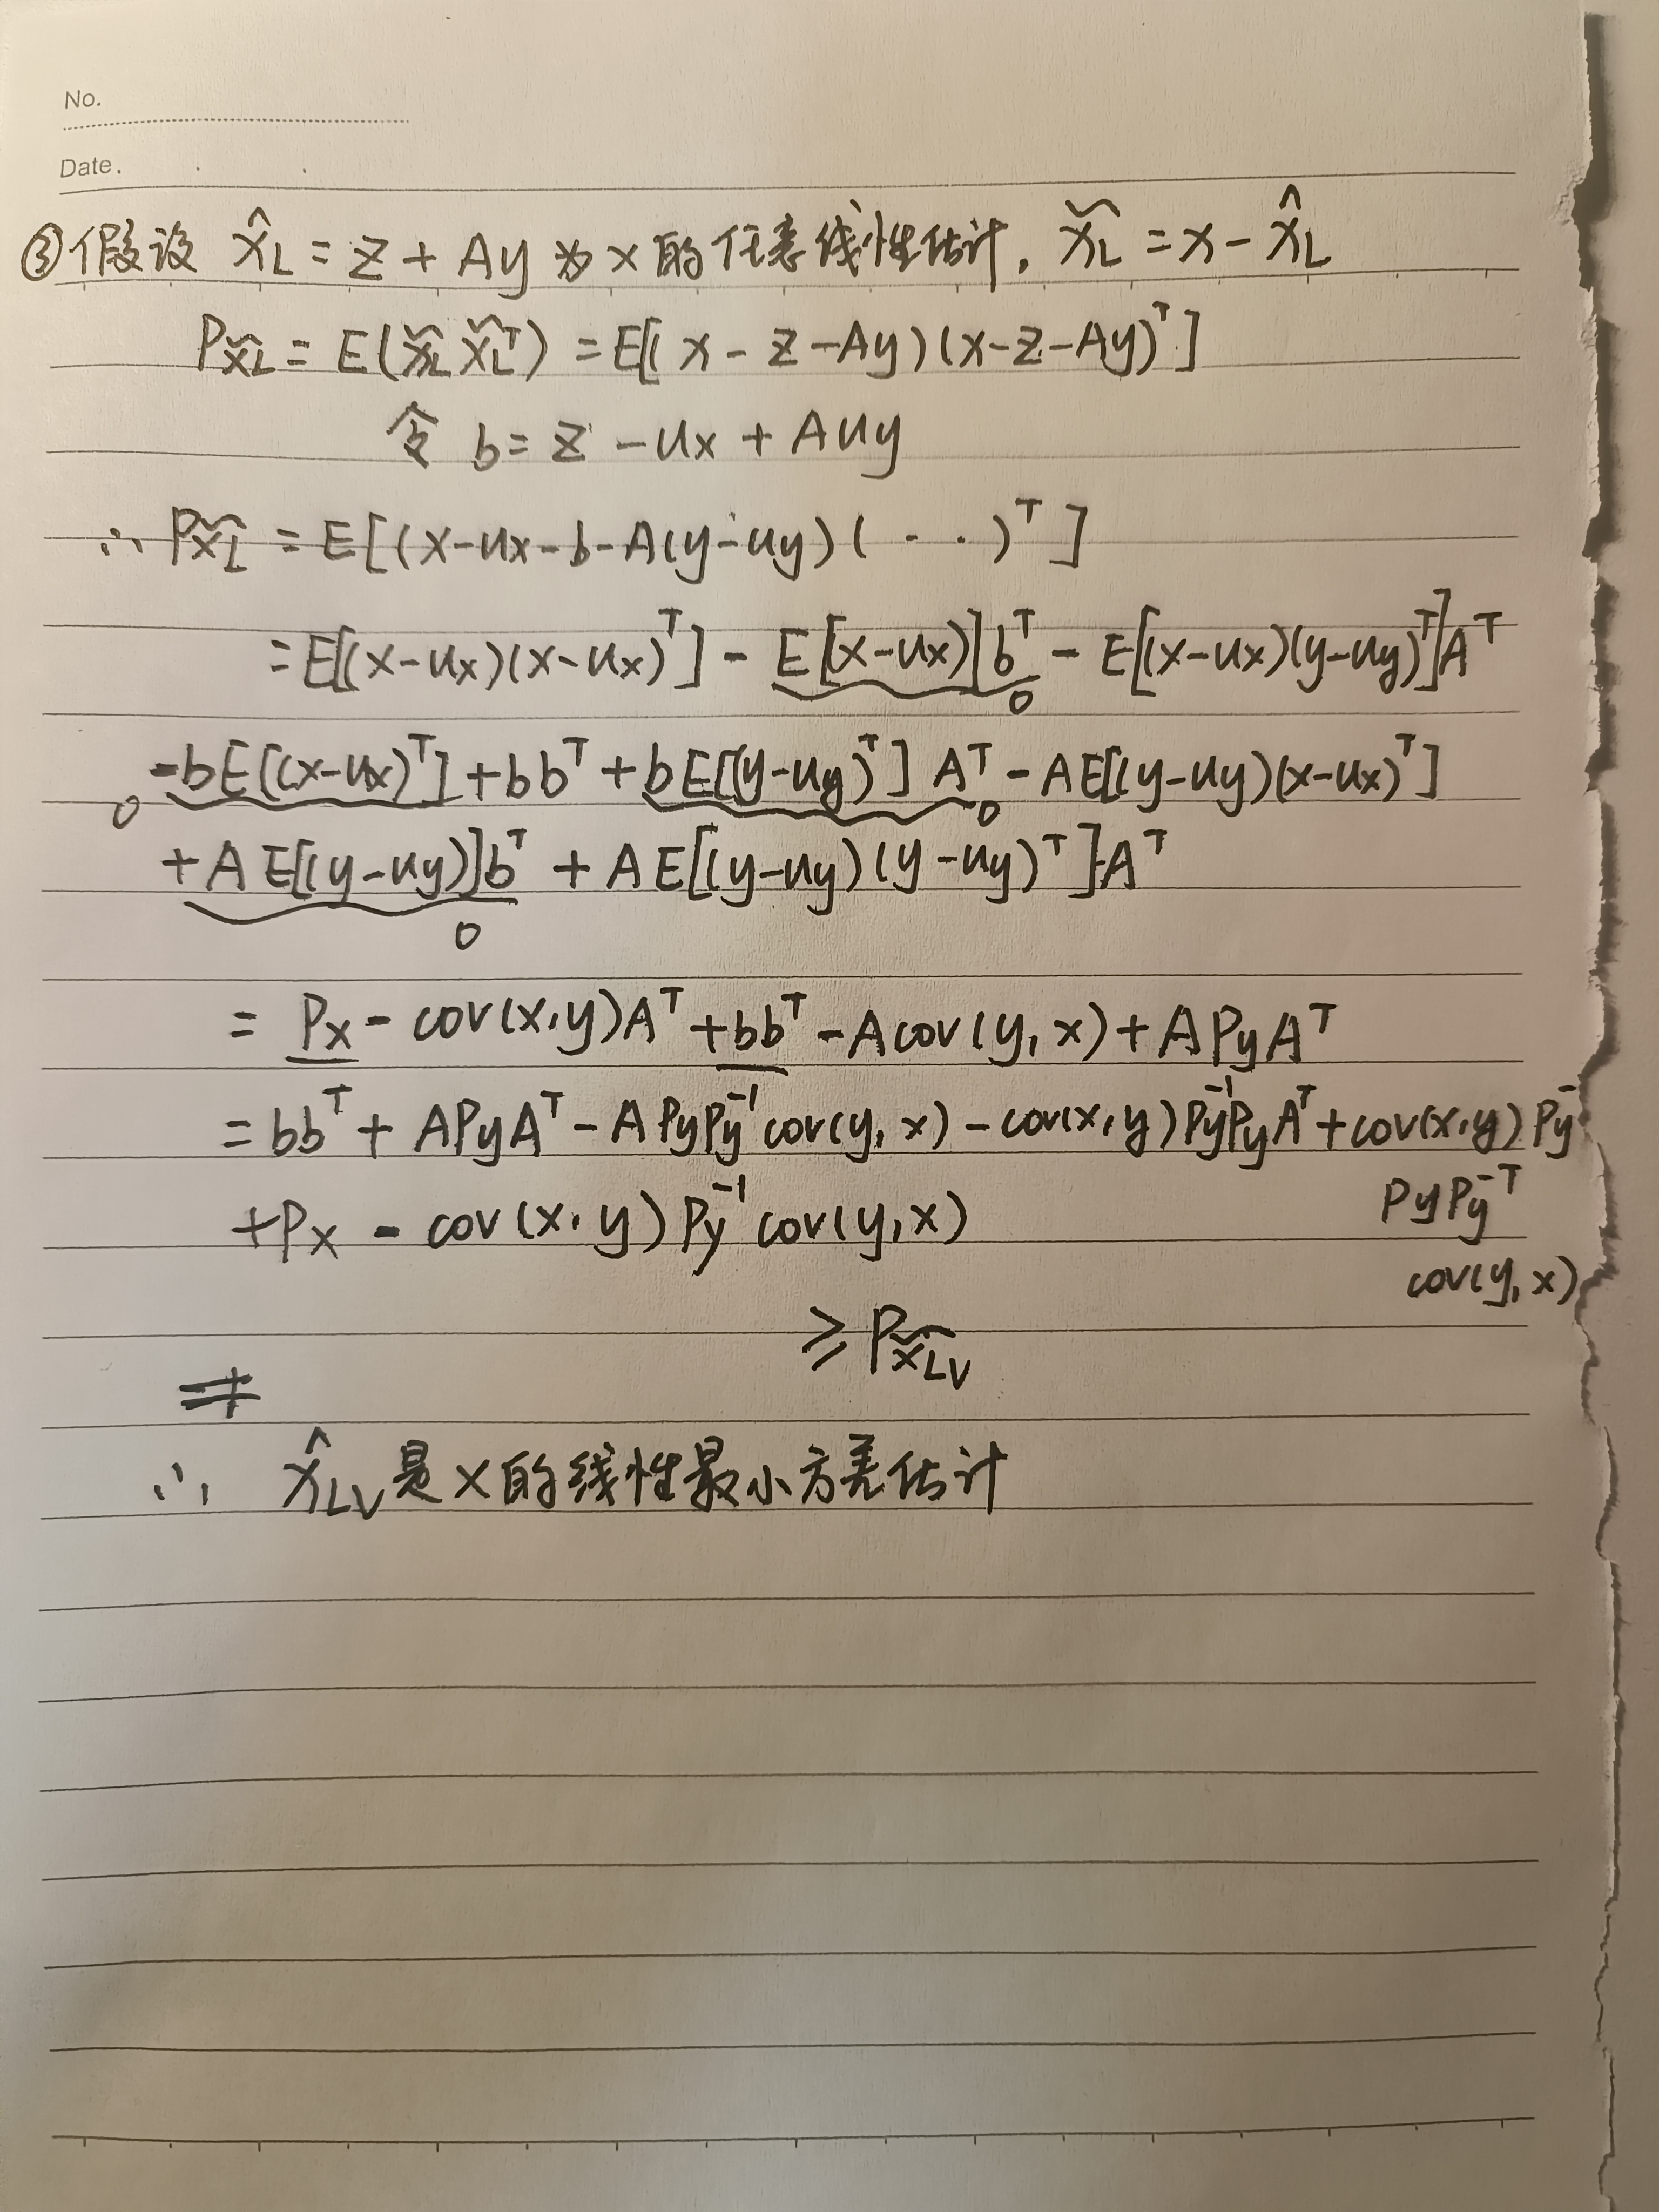 No.
Date.
③假设 x̂_L = z + Ay 为 x 的任意线性估计, x̃_L = x - x̂_L
P_x̃_L = E(x̃_L x̃_L^T) = E[(x - z - Ay)(x - z - Ay)^T]
令 b = z - u_x + Au_y
∴ P_x̃_L = E[(x - u_x - b - A(y - u_y)(· · ·)^T]
= E[(x - u_x)(x - u_x)^T] - E[x - u_x)]b^T - E[(x - u_x)(y - u_y)^T]A^T
0
-bE[(x - u_x)^T] + bb^T + bE[(y - u_y)^T]A^T - AE[(y - u_y)(x - u_x)^T]
0 0
+AE[(y - u_y)]b^T + AE[(y - u_y)(y - u_y)^T]A^T
0
= P_x - cov(x,y)A^T + bb^T - Acov(y,x) + AP_yA^T
= bb^T + AP_yA^T - AP_yP_y^-1 cov(y,x) - cov(x,y)P_y^-1P_yA^T + cov(x,y)P_y^-
P_yP_y^-T
cov(y,x)
+P_x - cov(x,y)P_y^-1 cov(y,x)
≥ P_x̃_LV
∴ x̂_LV 是 x 的线性最小方差估计